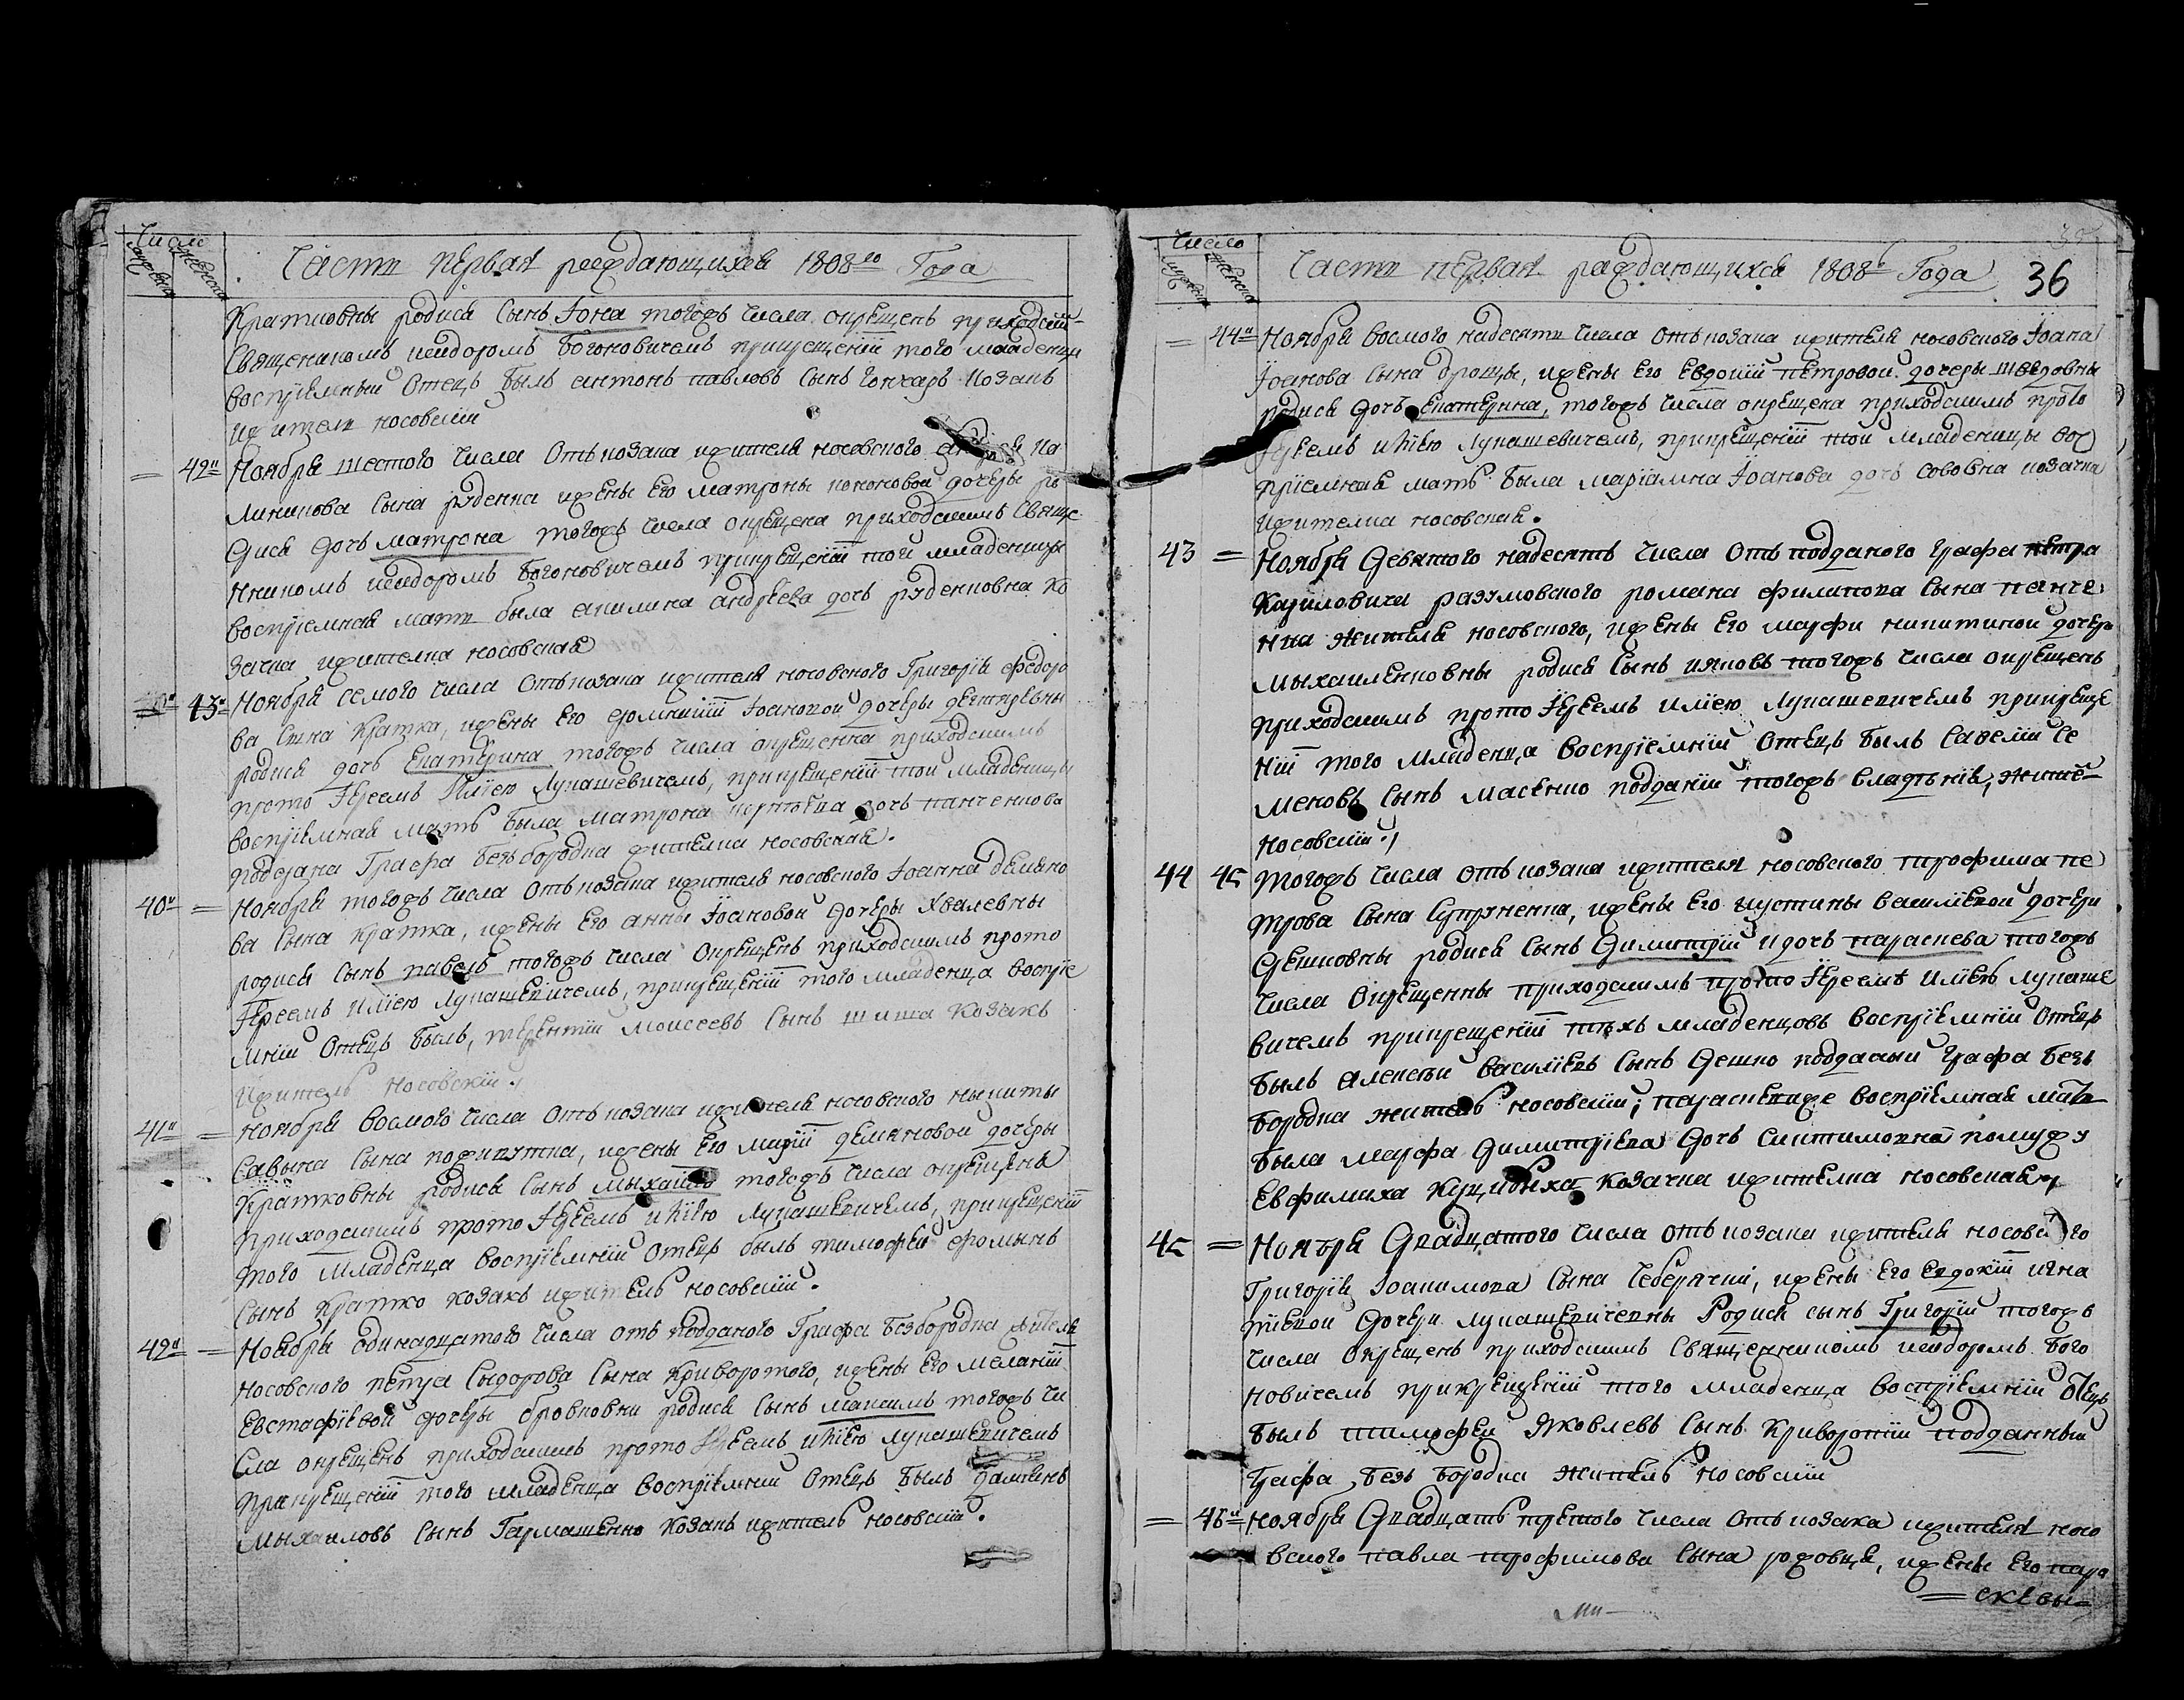 Число
мужеска
женска
Часть Первая раждающихся 1808го Года
Кратковны родися Сынъ Иона тогожъ числа окрещенъ приходскимъ
Священникомъ исидоромъ Богоновичемъ прикрещении того младенца
воспрiемный Отецъ былъ антонъ павловъ Сынъ Гончаръ Козакъ
житель носовскiй
42 Ноября шестого числа Отъ козака жителя носовского Ка
линикова Сына руденка жены Его матроны кононовой дочеры ро
дися дочь матрона тогожъ числа окрещена приходскимъ Свяще
нникомъ исидоромъ Богоновичемъ прикрещенiи той младеницы
воспрiемная мать была акилина андрѣева дочь руденковна Ко
зачка жителка носовская
43 Ноября семого числа Отъ козака жителя носовского Григорiя федоро
ва Сына Кратка, жены Его домникiи Iоановой дочеры дегтяревны
родися дочь Екатерина тогожъ числа окрещенна приходскимъ
прото Iереемъ Илiею Лукашевичемъ, прикрещенiи той младеницы
воспрiемная мать была матрона дочь панченкова
поддана Графа Безъбородка жителка носовская.
40 Ноября тогожъ числа Отъ козака жителя носовского Iоанна демяно
ва Сына Кратка, жены Его анны Iоановой дочеры Хвалевны
родися Сынъ павелъ тогожъ числа Окрещенъ приходскимъ прото
Iереемъ Илiею Лукашевичемъ, прикрещенiи того младенца воспрiе
мнiй Отецъ былъ, терентiй Моисеевъ Сынъ шита Козакъ
житель носовскiй.
41 Ноября восмого числа Отъ козака жителя носовского никиты
Савына Сына жены Его марiи демяновой дочеры
Кратковны родися Сынъ мыхаилъ тогожъ числа окрещенъ
приходскимъ прото Iереемъ Илiею Лукашевичемъ, прикрещенiи
того младенца воспрiемнiй Отецъ былъ тимофей фомынъ
Сынъ Кратко козакъ житель носовскiй.
42 Ноября одинадцатого числа отъ подданого Графа Безбородка жителя
носовского петра Сыдорова Сына Криворотого, жены Его меланiи
Евстафiевой дочеры бровковни родися Сынъ максимъ тогожъ чи
сла окрещенъ приходскимъ прото Iереемъ Илiею Лукашевичемъ
прикрещенiи того младенца воспрiемнiй Отецъ былъ дамiянъ
Мыхаиловъ Сынъ Гармашенко Козакъ житель носовскiй.
Число
мужеска
женска
Часть первая раждающихся 1808 Года
36
44 Ноября восмого надесять числа Отъ козака жителя носовского Iоана
Iоанова Сына дрощы, жены Его Евдокiи петровой дочеры шведовны
родися дочь Екатерина, тогожъ числа окрещена приходскимъ прото
Iереемъ Илiею Лукашевичемъ, прикрещенiи той младеницы вос
прiемная мать была марiамна Iоанова дочь Сововна козачка
жителка носовская.
43 Ноября Девятого надесять числа Отъ подданого Графа петра
Кириловича разумовского романа филипова Сына панче
нка жителя носовского, жены Его марфи никитиной дочеры
мыхаиленковны родися Сынъ ияковъ тогожъ числа окрещенъ
приходскимъ прото Iереемъ илiею Лукашевичемъ прикреще
нiи того младенца воспрiемнiй Отецъ былъ Савелiй Се
меновъ Сынъ масенко подданiй тогожъ владѣнiя, жите
носовскiй.
44 45 тогожъ числа отъ козака жителя носовского трофима пе
трова Сына Супруненка, жены Его иустины василiевой дочери
дешковны родися Сынъ Димитрiй и дочь параскева тогожъ
числа Окрещенны приходскимъ прото Iереемъ Илiею лукаше
вичемъ прикрещенiи тѣхъ младенцовъ воспрiемнiй Отецъ
былъ алексѣй василiевъ Сынъ Дешко подданый Графа Безъ
бородка житель носовскiй; параскевiже воспрiемная мать
была марфа Димитрiева Дочь Сиктимовна помужу
Евфимиха Куцибыха козачка жителка носовская
45 Ноября Двадцатого числа отъ козака жителя носовского
Григорiя Iоакимова Сына Чеберячкi, жены Его Евдокiи игна
тiевой Дочери лукашевичевны Родися сынъ Григорiй тогожъ
числа Окрещенъ приходскимъ Священникомъ исидоромъ Бого
новичемъ прикрещенiи того младенца воспрiемнiй Отецъ
былъ тимофей Яковлевъ Сынъ Криворотiй подданный
Графа Безъ Бородка житель носовскiй
46 Ноября Двадцать третого числа Отъ козака жителя носо
вского павла трофимова Сына родовця, жены Его пара
скевы